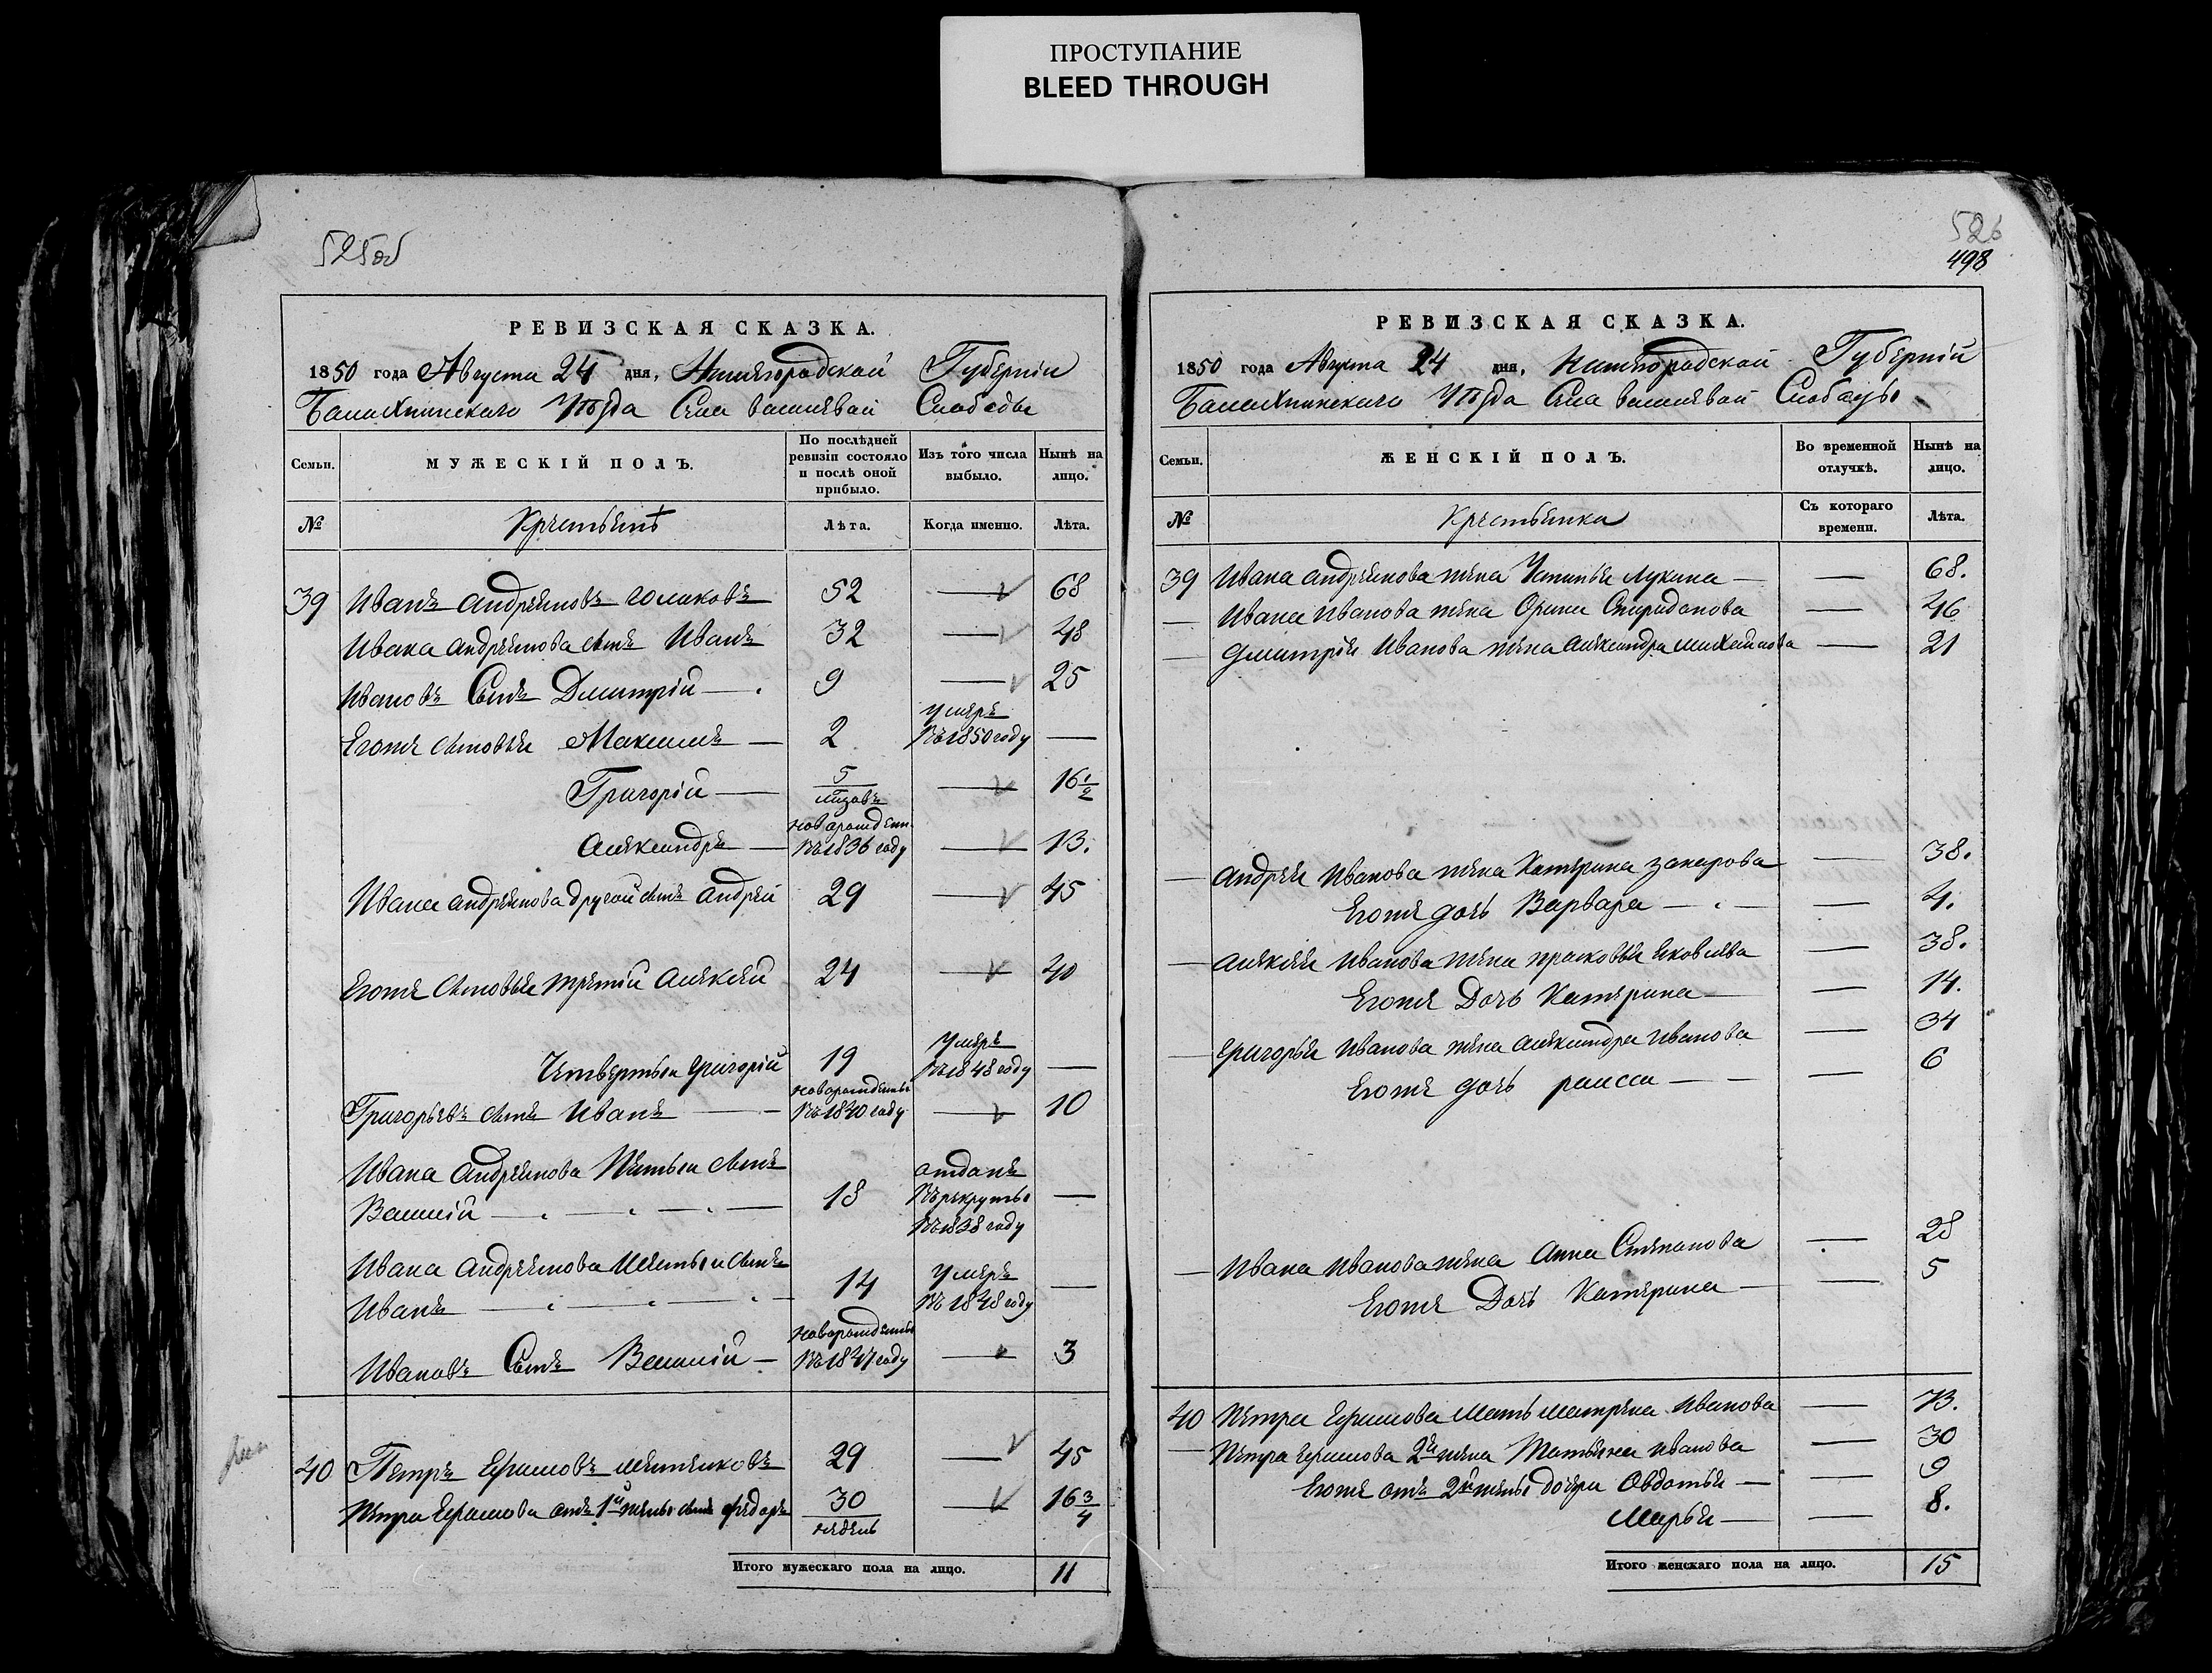 ПРОСТУПАНИЕ
BLEED THROUGH
525об
РЕВИЗСКАЯ СКАЗКА.
1850 года Августа 24 дня, Нижегородской Губернiи
Балахнинскаго Уѣзда Села Слободы
Семьи.
МУЖЕСКІЙ ПОЛЪ.
По послѣдней ревизіи состояло и послѣ оной прибыло.
Изъ того числа выбыло.
Нынѣ на лицо.
№
Крестьянъ
Лѣта.
Когда именно.
Лѣта.
39 Иванъ Андрѣяновъ 52 — 68
Ивана Андрѣянова сынъ Иванъ 32 — 48
Ивановъ Сынъ Дмитрій — 9 — 25
Егоже сыновья Максимъ — 2 умеръ въ 1850 году —
Григорій — 5 — 16 1/2
Александръ — новорожден въ 1836 году — 13.
Ивана Андрѣянова другой сынъ Андрей 29 — 45
Егоже Сыновья третій Алексей 24 — 40
Четвертый Григорій 19 умеръ въ 1848 году —
Григорьевъ сынъ Иванъ — новорожденный въ 1840 году — 10
Ивана Андрѣянова Пятый сынъ
Василій — 18 отданъ въ рекруты въ 1838 году —
Ивана Андрѣянова Шестый сынъ
Иванъ — 14 умеръ въ 1848 году —
Ивановъ Сынъ Василій — новорожденный въ 1847 году — 3
40 Петръ 29 — 45
Петра отъ 1й жены сынъ Федоръ 30 недель — 16 3/4
Итого мужескаго пола на лицо. 11
526
498
РЕВИЗСКАЯ СКАЗКА.
1850 года Августа 24 дня, Нижегородской Губернiи
Балахнинскаго Уѣзда Села Слободы
Семьи.
ЖЕНСКІЙ ПОЛЪ.
Во временной отлучкѣ.
Нынѣ на лицо.
№
Крестьянка
Съ котораго времени.
Лѣта.
39 Ивана Андрѣянова жена Устинья Лукина — — 68.
— Ивана Иванова жена Орина Спиридонова — 46
— Дмитрія Иванова жена Александра — 21
— Андрея Иванова жена Катерина Захарова — 38.
Егоже дочь Варвара — — 4.
— Алексея Иванова жена Прасковья Яковлева — 38.
Егоже Дочь Катерина — — 14.
— Григорья Иванова жена Александра Иванова — 34
Егоже дочь раисса — — 6
— Ивана Иванова жена Анна Степанова — 28
Егоже Дочь Катерина — — 5
40 Петра мать матрена Иванова — 73.
— Петра 2я жена Татьяна Иванова — 30
Егоже отъ 2й жены дочери Овдотья — — 9
Марья — — 8.
Итого женскаго пола на лицо. 15